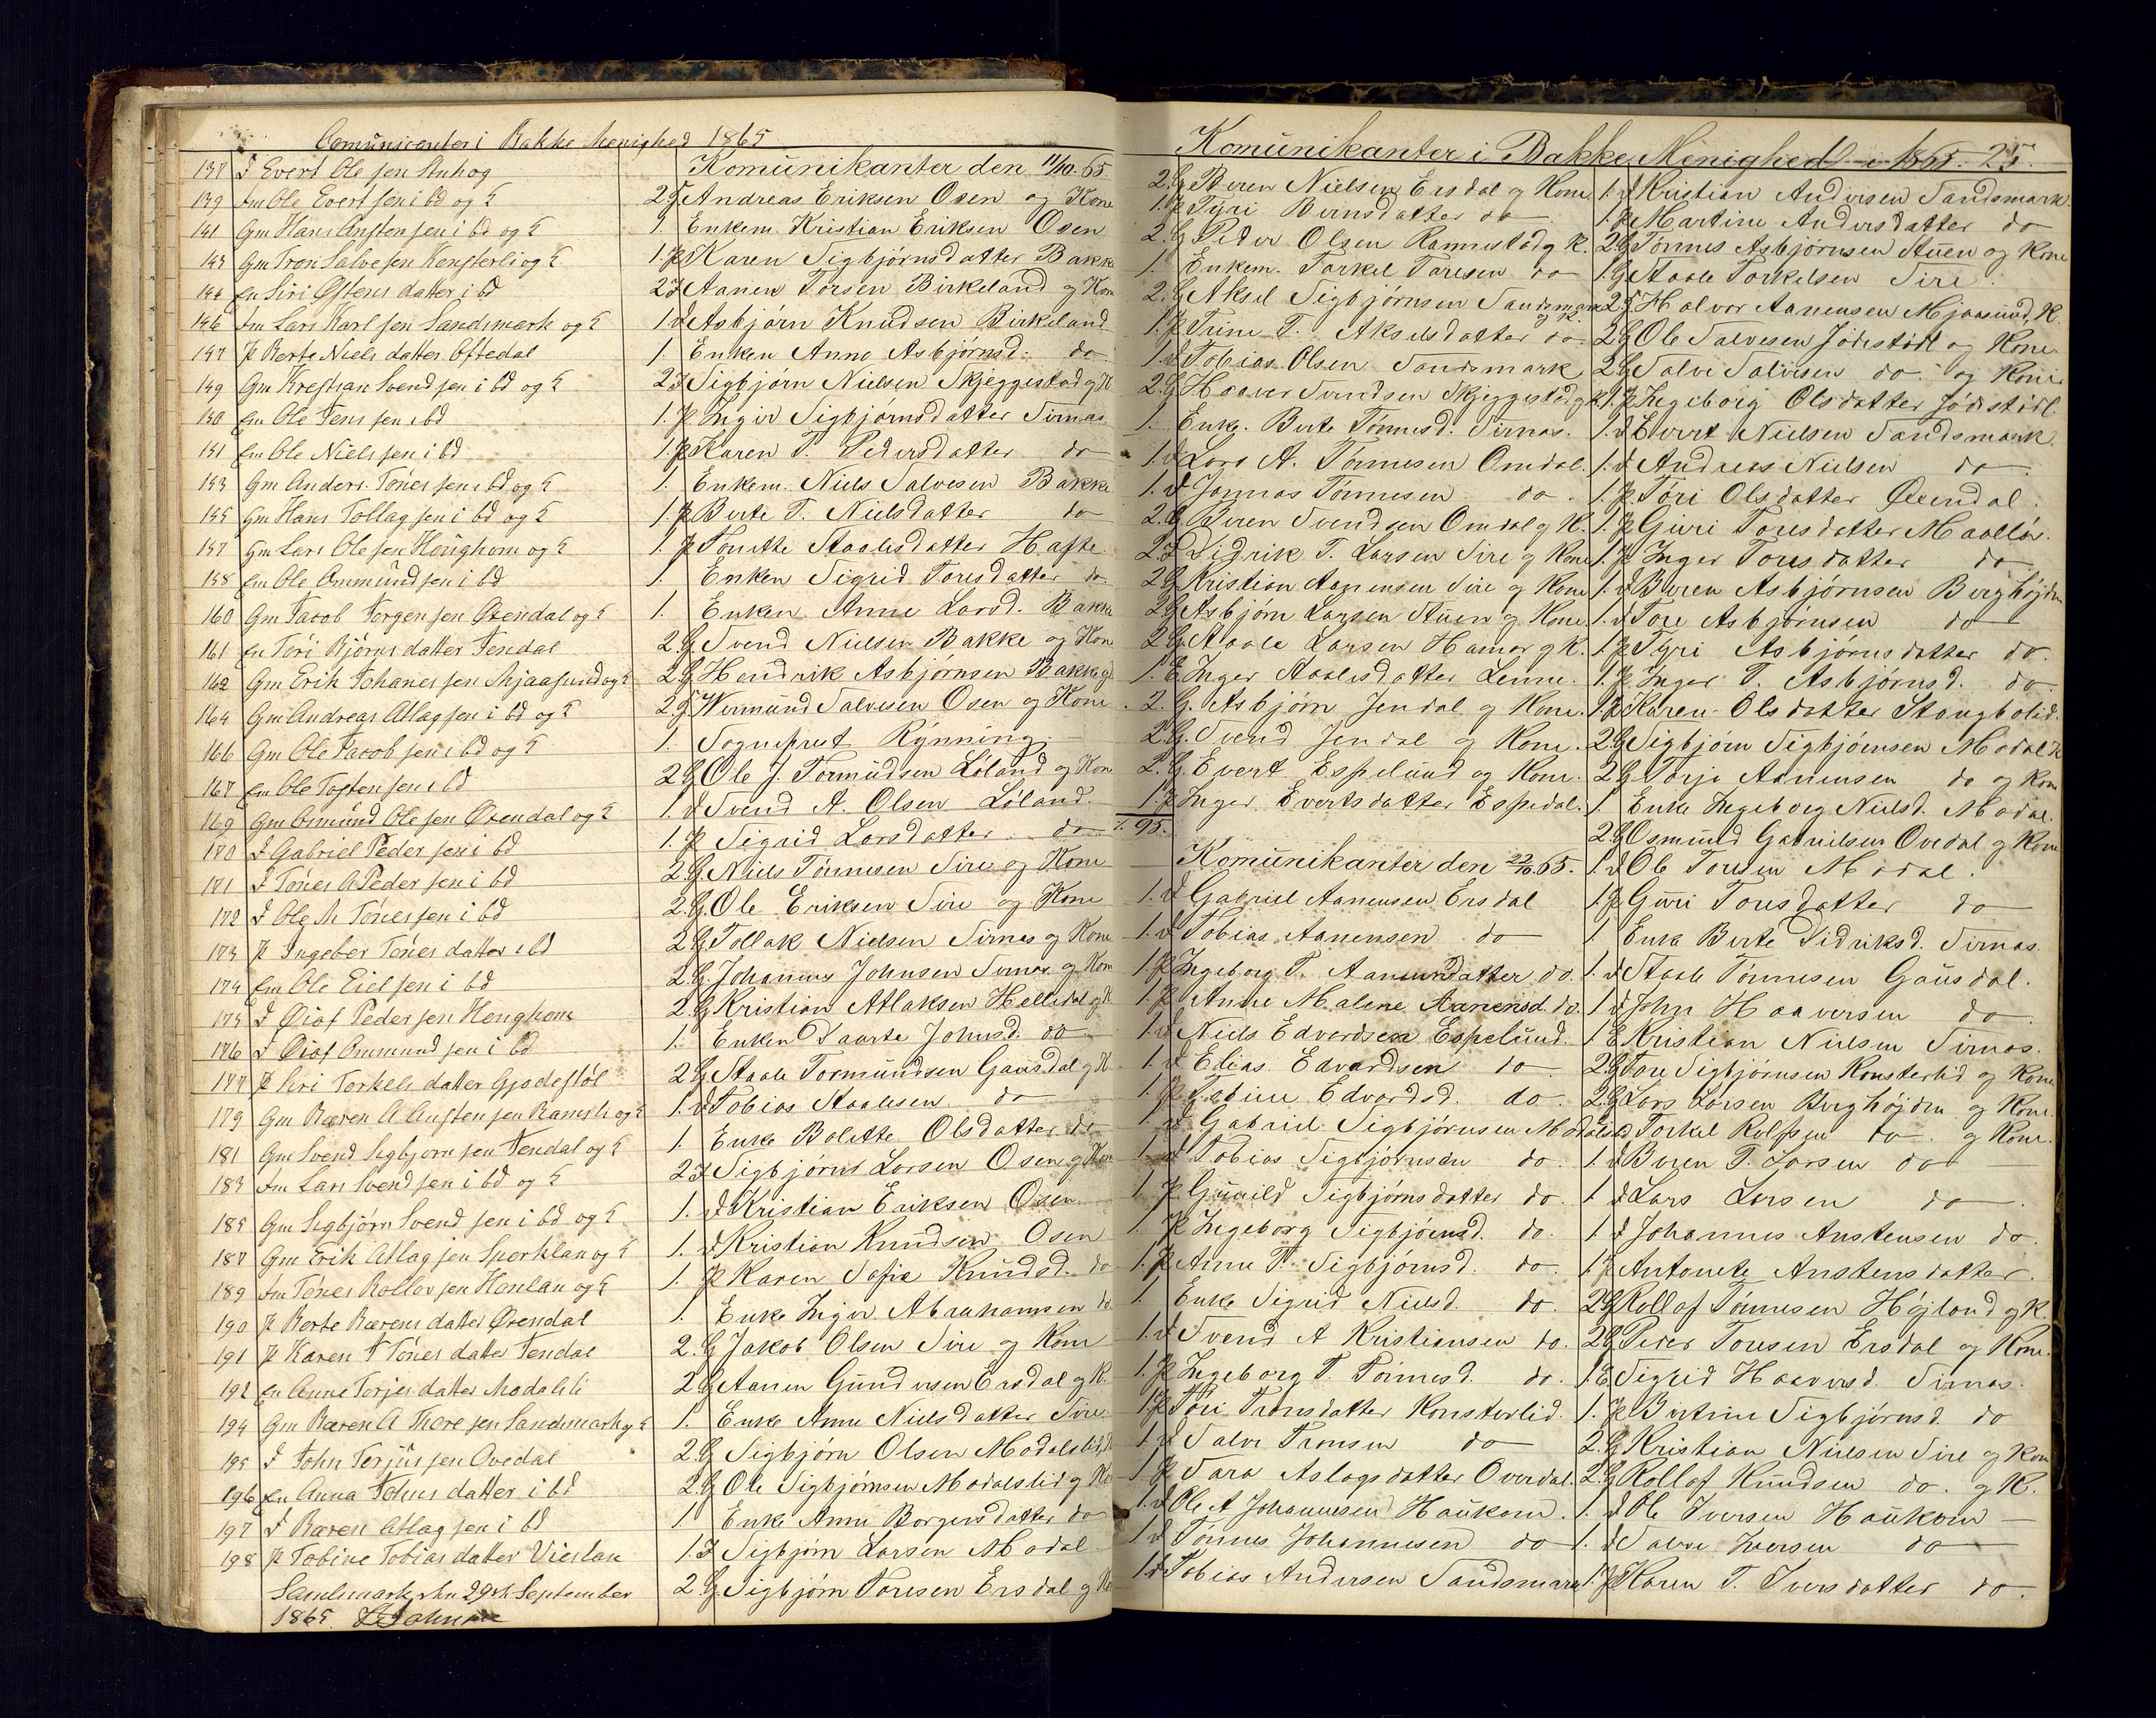 Comunicanter i Bakke Menighed 1865
137 J Evert Olesen Stuhog
139 Fm Ole Evertsen i bd og E
141 Gm Hans Anstensen i bd og E
143 Gm Tron Salvesen Kensterli og E
144 En Siri Østensdatter i bd
146 Fm Lars Karlsen Sandsmark og E
147 P Berte Nielsdatter Oftedal
149 Gm Krestian Svendsen i bd og E
150 Em Ole Jensen i bd
151 Em Ole Nielssen i bd
153 Gm Anders Tönessen i bd og E
155 Gm Hans Tollagsen i bd og E
157 Gm Lars Olesen Houghom og E
158 Em Ole Ommundsen i bd
160 Gm Jacob Jorgensen Øxendal og E
161 En Töri Björnsdatter Jendal
162 Gm Erik Johanessen Mjaasund og E
164 Gm Andreas Atlagsen i bd og E
166 Gm Ole Jacobsen i bd og E
167 Em Ole Tostensen i bd
169 Gm Osmund Olesen Øxendal og E
170 J Gabriel Pedersen i bd
171 J Tönes A Pedersen i bd
172 J Ole M Tönessen i bd
173 P Ingebor Tönesdatter i bd
174 Em Ole Eielsen i bd
175 J Oiaf Pedersen Houghom
176 J Oiaf Ommundsen i bd
177 P Siri Torkelsdatter Gjodestöl
179 Gm Bæren A Anstensen Ramsli og E
181 Gm Svend Segbjornsen Jendal og E
183 Fm Lars Svendsen i bd og E
185 Gm Segbjörn Svendsen i bd og E
187 Gm Erik Atlagsen Sporklan og E
189 Fm Tönes Rollovsen Honlan og E
190 P Berte Bærensdatter Øxendal
191 P Karen T Tönesdatter Jendal
192 En Anne Terjesdatter Modalsli
194 Gm Bæren A Thoresen Sandsmark og E
195 J John Terjussen Ovedal
196 En Anna Johnsdatter i bd
197 J Bæren Atlagsen i bd
198 P Tobine Tobiasdatter Vieslan
Sandsmark den 29de September
1865
Komünikanter den 11/10.65.
2 F Andreas Eriksen Osen og Kone
1. Enkem. Kristian Eriksen Osen
1. P Karen Sigbjörnsdatter Bakke
2 F Aanen Torsen Birkeland og Kon
1 d Asbjörn Knudsen Birkeland
1. Enken Anne Asbjörnsd. do
2 F Sigbjörn Nielsen Skjeggestad og K
1. P Inger Sigbjörnsdatter Sirnas
1. P Karen T. Pedersdatter do
1. Enkem. Niels Salvesen Bakke
1. P Berte T. Nielsdatter do
1. P Tonette Staalesdatter Hafte
1. Enken Sigrid Toresdatter do
1. Enken Anne Larsd. Bakke
2 G Svend Nielsen Bakke og Kon
2 G Hendrik Asbjörnsen Bakke og
2 G Wermund Salvesen Osen og Kone
1. Sogneprest Rynning
2 G Ole J. Tormüdsen Löland og Kon
1. d Svend A. Olsen Löland
1. P Sigrid Larsdatter do
2 G Niels Tönnesen Sire og Kone
2. G Ole Eriksen Sire og Kone
2 G Tollak Nielsen Sirnes og Kone
2. G Johannes Johnsen Sirnas og Kon
2. G Kristian Atlaksen Helledal og K
1. Enken Taarte Johnsd. do
2 G Staale Tormündsen Gausdal og K
1. d Tobias Staalesen do
1 Enke Bolette Olsdatter do
2 F Sigbjörns Larsen Osen og Kon
1. d Kristian Eriksen Osen
1. d Kristian Knüdsen Osen
1. P Karen Sofie Knüdsd. do
1. Enke Inger Abrahamsen do
2. G Jakob Olsen Sire og Kone
2 G Aanen Gundersen Ersdal og K.
1. Enke Anne Nielsdatter Sire
2. G Sigbjörn Olsen Modalslid
2. G Ole Sigbjörnsen Modalslid og Ko
1 Enke Anne Borgersdatter do
1. F Sigbjörn Larsen Modal
2 G. Sigbjörn Toresen Ersdal og Ko
Komünikanter i Bakke Menighed i 1865. 25.
2. G Beren Nielsen Ersdal og Kone
1. P Tyri Bernsdatter do
2. G Peder Olsen Ramestad og K.
1. Enkem. Torkel Toresen do
2. G Aksel Sigbjörnsen Sandsmark og K.
1. P Trine T. Akselsdatter do
1. d Tobias Olsen Sandsmark
2. G Haaver Svendsen Skjeggestad og K
1. Enke. Berte Tönnesd. Sirnas.
1. d Lars A. Tönnesen Omdal.
1. d Jonnas Tönnesen do.
2. G Beren Svendsen Omdal og K.
2. F Didrik T. Larsen Sire og Kone
2 G Kristian Aanensen Sire og Kone
2 G Asbjörn Larsen Stüen og Kone.
2 G Staale Larsen Hamar og K.
1. E Inger Staalesdatter Lenne.
2. G. Asbjörn Jendal og Kone.
2 G. Svend Jendal og Kone.
2. G. Evert Espelünd og Kone.
1. P Inger Evertsdatter Espedal.
95.
Komünikanter den 22/10.65.
1. d Gabriel Aanensen Ersdal
1. d Tobias Aanensen do
1. P Ingeborg T. Aanensdatter do.
1. P Anne Malene Aanensd. do.
1. d Niels Edvardsen Espelünd.
1. d Elias Edvardsen do
1. P Tobine Edvardsd. do.
1 d Gabriel Sigbjörnsen Modalslid
1 d Tobias Sigbjörnsen do.
1. P Günild Sigbjörnsdatter do.
1. P Ingeborg Sigbjörnsd. do.
1. P Anne T. Sigbjörnsd. do.
1 Enke Sigrid Nielsd. do.
1. d Svend A Kristiansen do.
1. P Ingeborg T. Tönnesd. do.
1 P Töri Tronsdatter Konsterlid.
1 d Salve Tronsen do
1 P Sara Aslagsdatter Overdal.
1. d Ole A Johannesen Haükom.
1 d Tönnes Johannesen do
1 d Tobias Andersen Sandsmark
1. d Kristian Andersen Sandsmark
1. P Martine Andersdatter do
2 G Tönnes Asbjörnsen Stüen og Kone
1. G Staale Torkelsen Sire.
2. F Halvor Aanensen Mjaasund, K.
2 G Ole Salvesen Jödestöl og Kone.
2 G Salve Salvesen do. og Kone
1. P Ingeborg Olsdatter Jödestöl
1. d Evert Nielsen Sandsmark.
1. d Andreas Nielsen do.
1. P Töri Olsdatter Øxendal.
1. P Güri Toresdatter Maallöi.
1. P Inger Toresdatter do
1. d Beren Asbjörnsen Berghöjden
1. d Tore Asbjörnsen do
1. P Tyri Asbjörnsdatter do.
1. P. Inger T. Asbjörnsd. do
1 P Karen Olsdatter Stangbolid.
2 G Sigbjörn Sigbjörnsen Modal K
2 G Torje Aanensen do og Kon
1 Enke Ingeborg Nielsd. Modal.
2 G Osmund Gabrielsen Ovedal og Kone
1. d Ole Toresen Modal.
1 P Güri Toresdatter do
1 Enke Berte Didriksd. Sirnas.
1. d Staale Tönnesen Gausdal.
1 d John Haaversen do
1 E Kristian Nielsen Sirnas.
2 G Tore Sigbjörnsen Konsterlid og Kone
2 G Lars Larsen Berghöjden og Kone.
2 G Torkel Rolfsen do. og Kone.
1. d Beren T. Larsen do
1 d Lars Larsen do
1 d Johannes Anstensen do.
1 P Antonette Anstensdatter.
2 G Rollof Tönnesen Höjland og K.
2 G Peder Toresen Ersdal og Kone.
1 E Sigrid Haaversd. Sirnas.
1. P Bertine Sigbjörnsd. do
2. G Kristian Nielsen Sire og Kon
2. G Rollof Knüdsen do. og K.
1. d Ole Iversen Haükom
1. d Salve Iversen do
1. P Karen T. Iversdatter do.